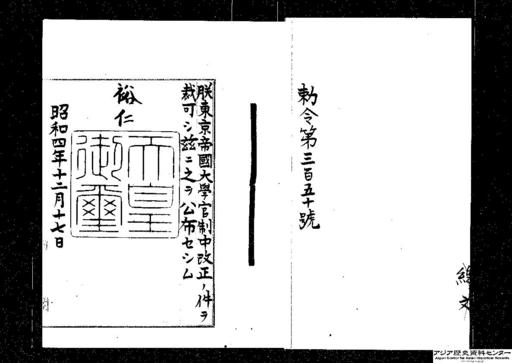 勅令第三百五十號
朕東京帝國大學官制中改正ノ件ヲ
裁可シ玆ニ之ヲ公布セシム
裕仁
天皇
御璽
昭和四年十二月十七日
アジア歴史資料センター
Japan Center for Asian Historical Records